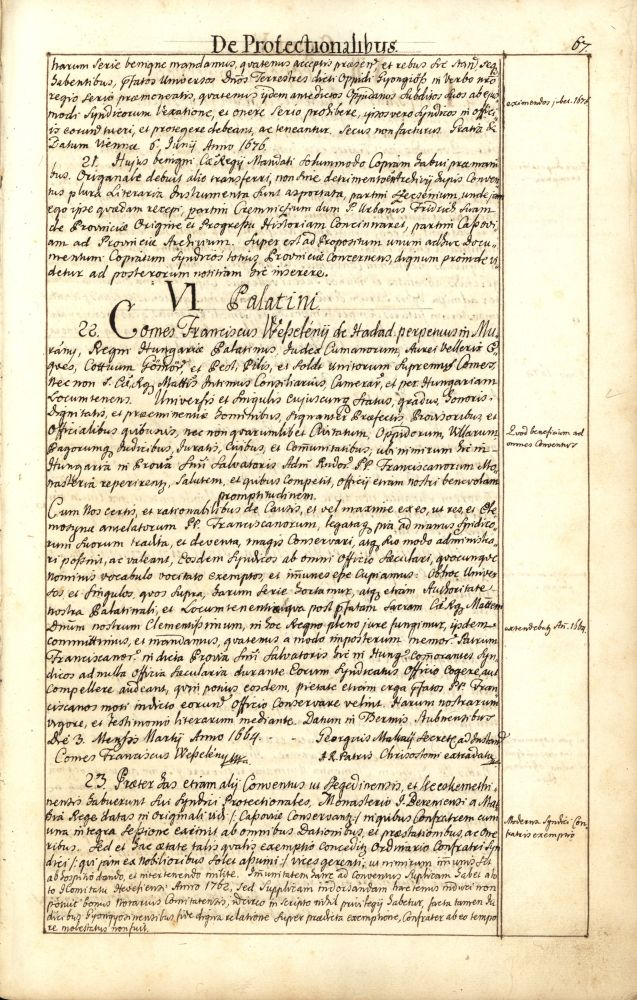 De Protectionalibus.
67.
harum serie benigne mandamus, quatenus acceptis præsen. et rebus sic
habentibus, pfatos Universos Dnos Terrestres dicti Oppidi Gyöngiöss in verbo nro
regio serio præmoneatis, quatenus ijdem antedictos Oppidanos Subditos suos ab ejus
modi Syndicorum Vexatione, et onere serio prohibere, ipsos vero Syndicos in offici
is eorund tueri, et protegere debeant, ac teneantur. Secus non facturus.
Datum Viennæ 6. Junij Anno 1676.
eximendos
21. Hujus benigni Cæ Regij Mandati solummodo Copiam habui præ mani
bus. Originale debuit alio transferri, non sine detrimento hujus Conven
tus plura Literaria Instrumenta sunt asportata, partim Szecsenium, unde jam
ego ipse quædam recepi, partim Cremnicium dum P. Urbanus suam
de Provinciæ Origine et Progressu Historiam Concinnaret, partim Cassovi
am ad Provinciæ Archivum. Super est ad Propositum unum adhuc Docu
mentum Copiatum Syndicos totius Provinciæ Concernens, dignum proinde vi
detur ad posterorum notitiam hic inserere.
VI Palatini
22. Comes Franciscus Wesselénÿ de Hadad, perpetuus in Mu
rány, Regni Hungariæ Palatinus, Judex Cumanorum, Aurei velleris E
ques, Cottuum Gömör. et Pest, Pilis, et Solth unitorum Supremus Comes,
nec non S. Cæ Rg Mattis Intimus Consiliarius, Camerar. et per Hungariam
Locumtenens. Universis et singulis cujuscunq status, gradus, honoris,
dignitatis, et præeminentiæ hominibus, signanter Præfectis, Provisoribus et
Officialibus quibusvis, nec non quarumlibet Civitatum, Oppidorum, Villarum
Pagorumq Judicibus, Juratis, Civibus, et Comunitatibus, ubi nimirum hic in
Hungaria in Provã Smi Salvatoris Adm Rndor. PP. Franciscanorum Mo
nasteria reperirentr, Salutem, et quibus competit, officij etiam nostri benevolam
promptitudinem.
Quod beneficium ad
omnes Conventus
Cum Nos certis, et rationabilibus de Causis, et vel maxime ex eo, ut res, et Ele
mosynæ antelatorum PP. Franciscanorum, legataq pia, ad manus Syndico,
rum suorum tradita, et devenita, magis Conservari, atq eo modo administra
ri possint, ac valeant, Eosdem Syndicos ab omni Officio sæculari, quocunque
nominis vocabulo vocitato exemptos, et im̃unes esse Cupiamus: Obhoc Univer
sos et singulos, quos supra, harum serie hortamur, atq etiam Authoritate
nostra Palatinali, et Locumtenentiæ qua post pfatam Sacram Cæ Rg Mattem
Dnum nostrum Clementissimum, in hoc Regno pleno jure fungimur, ijsdem
committimus, et mandamus, quatenus a modo imposterum memor. Patrum
Franciscanor. in dicta Provã Smi Salvatoris hic in Hung Comorantes Syn
dicos ad nulla officia sæcularia durante Eorum Syndicatus Officio Cogere, aut
Compellere audeant, quin potius eosdem, pietate etiam erga pfatos PP. Fran
ciscanos moti in dicto eorund Officio Conservare velint. Harum nostrarum
vigore, et testimonio literarum mediante. Datum in Thermis
Die 3. Mensis Martij Anno 1664. - - Georgius secret. ad Instant
Comes Franciscus Wesselény A R Patris Chrisostomi extradatæ
extendebatr An. 1664.
23. Præter has etiam alij Conventus ut Szegedinensis, et Kecskemethi
nensis habuerunt sui Syndici Protectionales, Monasterio
Rege datas in Originali vidi /: Cassoviæ Conservantr :/ in quibus Confratrem cum
una integra Sessione eximit ab omnibus Dationibus, et præstationibus, ac One
ribus. Sed et hac ætate talis qualis exemptio Conceditr Ordinario Confratri Syn
dici /: qui jam ex nobilioribus solet assumi :/ vices gerenti, ut nimirum im̃unis sit
ab hospitio dando, et intertenendo milite. Im̃unitatem hanc ad Conventus Supplicam habet ab In
to Comitatu Hevesiensi Anno 1762, sed supplicam indorsandam hactenus induci non
potuit bonus Notarius Comitatensis, idcirco in scripto nihil privilegij habetur, facta tamen Ju
dicibus Gyöngyösinensibus fide digna relatione super prædicta exemptione, Confrater ab eo tempo
re molestatus non fuit.
Moderna Syndici Con
fratris exemptio